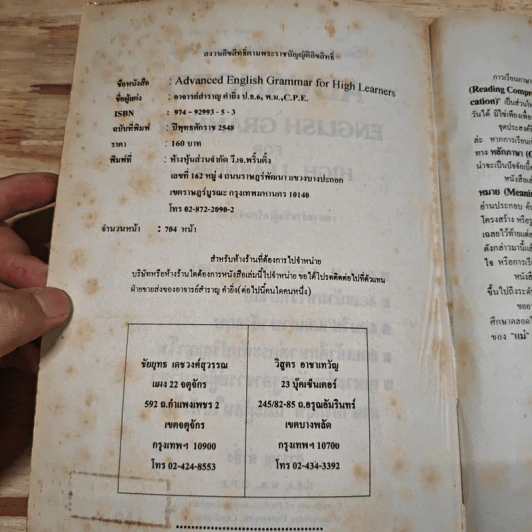 สงวนลิขสิทธิ์ตามพระราชบัญญัติลิขสิทธิ์
ชื่อหนังสือ : Advanced English Grammar for High Learners
ชื่อผู้แต่ง : อาจารย์สำราญ คำยิ่ง ป.ธ.6, พ.ม.,C.P.E.
ISBN : 974 - 92993 - 5 - 3
ฉบับที่พิมพ์ : ปีพุทธศักราช 2548
ราคา : 160 บาท
พิมพ์ที่ : ห้างหุ้นส่วนจำกัด วี.เจ.พริ้นติ้ง
เลขที่ 162 หมู่ 4 ถนนราษฎร์พัฒนา แขวงบางปะกอก
เขตราษฎร์บูรณะ กรุงเทพมหานคร 10140
โทร 02-872-2090-2
จำนวนหน้า : 704 หน้า
สำหรับห้างร้านที่ต้องการไปจำหน่าย
บริษัทหรือห้างร้านใดต้องการหนังสือเล่มนี้ไปจำหน่าย ขอได้โปรดติดต่อไปที่ตัวแทน
ฝ่ายขายส่งของอาจารย์สำราญ คำยิ่ง(ต่อไปนี้คนใดคนหนึ่ง)
ชัยยุทธ เดชวงศ์สุวรรณ
แผง 22 จตุจักร
592 ถ.กำแพงเพชร 2
เขตจตุจักร
กรุงเทพฯ 10900
โทร 02-424-8553
วิสูตร อาชาเทวัญ
23 บุ๊คเซ็นเตอร์
245/82-85 ถ.อรุณอัมรินทร์
เขตบางพลัด
กรุงเทพฯ 10700
โทร 02-434-3392
การเรียนภาษา
(Reading Compre
cation)' เป็นส่วนใ
วันได้ มิใช่เพียงเพื่อ
จุดประสงค์
ล่ะ หากการเรียน
ทาง หลักภาษา (
น่าจะเป็นปัจจัยเบื้อ
หนังสือเล
หมาย (Meani
อ่านประกอบ ค้
โครงสร้าง หรือรู
เฉลยไว้ท้ายแต่ล
ดังกล่าวมานี้แล้
ใจ หรือการเรี
หนังสื
ขึ้นไปถึงระดั
ขออา
ศึกษาตลอดไ
ของ "แม่"